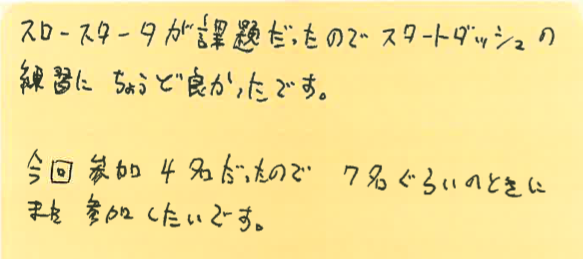 スロースタータが課題だったのでスタートダッシュの
練習にちょうど良かったです。
今回参加4名だったので 7名ぐらいのときに
また参加したいです。